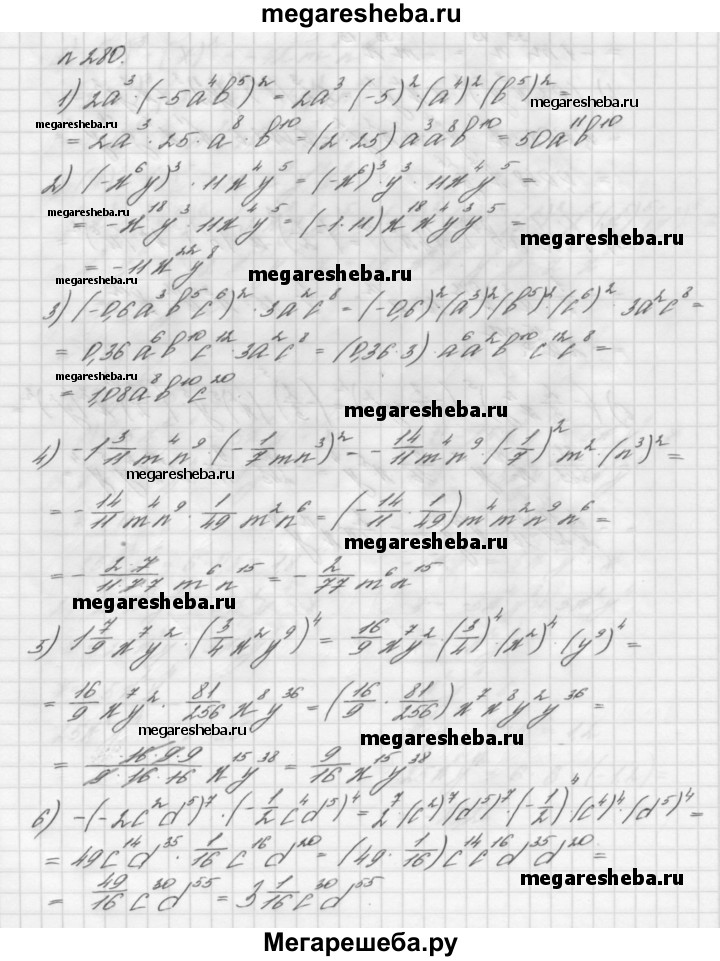 megaresheba.ru
n 280.
1) 2a³·(-5a⁴b⁵)² = 2a³·(-5)²·(a⁴)²(b⁵)² =
megaresheba.ru
megaresheba.ru
= 2a³·25·a⁸·b¹⁰ = (2·25)a³a⁸b¹⁰ = 50a¹¹b¹⁰
2) (-x⁶y)³·11x⁴y⁵ = (-x⁶)³·y³·11x⁴y⁵ =
megaresheba.ru
= -x¹⁸y³·11x⁴y⁵ = (-1·11)x¹⁸x⁴y³y⁵ =
megaresheba.ru
= -11x²²y⁸
megaresheba.ru
megaresheba.ru
3) (-0,6a³b⁵c⁶)²·3a²c⁸ = (-0,6)²·(a³)²·(b⁵)²·(c⁶)²·3a²c⁸ =
= 0,36a⁶b¹⁰c¹²·3a²c⁸ = (0,36·3)·a⁶a²b¹⁰c¹²c⁸ =
megaresheba.ru
= 1,08a⁸b¹⁰c²⁰
megaresheba.ru
4) -1 3/11 m⁴n⁹·(-1/7 mn³)² = -14/11 m⁴n⁹·(-1/7)² m²·(n³)² =
megaresheba.ru
= -14/11 m⁴n⁹·1/49 m²n⁶ = (-14/11·1/49)m⁴m²n⁹n⁶ =
megaresheba.ru
= -2·7/11·7·7 m⁶n¹⁵ = -2/77 m⁶n¹⁵
megaresheba.ru
5) 1 7/9 x⁷y²·(3/4 x²y⁹)⁴ = 16/9 x⁷y²(3/4)⁴·(x²)⁴·(y⁹)⁴ =
= 16/9 x⁷y²·81/256 x⁸y³⁶ = (16/9·81/256)x⁷x⁸y²y³⁶ =
megaresheba.ru
megaresheba.ru
= 16·9·9/9·16·16 x¹⁵y³⁸ = 9/16 x¹⁵y³⁸
6) -(-2c²d⁵)⁷·(-1/2 c⁴d⁵)⁴ = 2⁷·(c²)⁷(d⁵)⁷·(-1/2)⁴(c⁴)⁴·(d⁵)⁴ =
megaresheba.ru
= 49c¹⁴d³⁵·1/16 c¹⁶d²⁰ = (49·1/16)c¹⁴c¹⁶d³⁵d²⁰ =
megaresheba.ru
= 49/16 c³⁰d⁵⁵ = 3 1/16 c³⁰d⁵⁵
Мегарешеба.ру